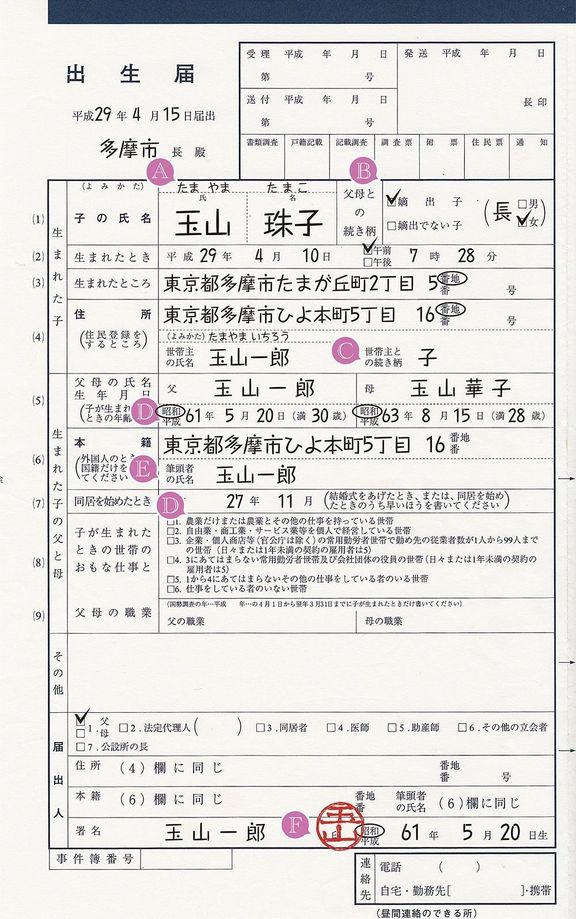 出生届
平成29年4月15日届出
多摩市 長 殿
受理 平成 年 月 日
第 号
発送 平成 年 月 日
送付 平成 年 月 日
第 号
長印
書類調査 戸籍記載 記載調査 調査票 附票 住民票 通知
A
B
生まれた子
(1)
(よみかた)
子の氏名
たま やま たまこ
氏 名
玉山 珠子
父母との続き柄
☑嫡出子
□嫡出でない子
(長 □男 ☑女)
(2) 生まれたとき 平成29年 4月 10日 ☑午前 □午後 7時 28分
(3) 生まれたところ 東京都多摩市たまが丘町2丁目 5 番地 番 号
(4)
住所
(住民登録をするところ)
東京都多摩市ひよ本町5丁目 16 番地 番 号
(よみかた) たまやま いちろう
世帯主の氏名 玉山一郎
C
世帯主との続き柄 子
生まれた子の父と母
(5)
父母の氏名
生年月日
(子が生まれたときの年齢)
父 玉山一郎 母 玉山華子
D
昭和 平成 61年 5月 20日(満 30歳) 昭和 平成 63年 8月 15日(満 28歳)
(6)
本籍
(外国人のときは国籍だけを書いてください)
東京都多摩市ひよ本町5丁目 16 番地 番
E
筆頭者の氏名 玉山一郎
(7) 同居を始めたとき
D
27年 11月 (結婚式をあげたとき、または、同居を始めたときのうち早いほうを書いてください)
(8)
子が生まれたときの世帯のおもな仕事と
□1. 農業だけまたは農業とその他の仕事を持っている世帯
□2. 自由業・商工業・サービス業等を個人で経営している世帯
□3. 企業・個人商店等(官公庁は除く)の常用勤労者世帯で勤め先の従業者数が1人から99人までの世帯(日々または1年未満の契約の雇用者は5)
□4. 3にあてはまらない常用勤労者世帯及び会社団体の役員の世帯(日々または1年未満の契約の雇用者は5)
□5. 1から4にあてはまらないその他の仕事をしている者のいる世帯
□6. 仕事をしている者のいない世帯
(9)
父母の職業
(国勢調査の年…平成 年…の4月1日から翌年3月31日までに子が生まれたときだけ書いてください)
父の職業 母の職業
その他
届出人
☑1. 父 □ 母 □2. 法定代理人( ) □3. 同居者 □4. 医師 □5. 助産師 □6. その他の立会者
□7. 公設所の長
住所 (4)欄に同じ 番地 番 号
本籍 (6)欄に同じ 番地 番 筆頭者の氏名 (6)欄に同じ
署名 玉山一郎
F
玉山
印
昭和 平成 61年 5月 20日生
事件簿番号
連絡先
電話 ( )
自宅・勤務先[ ]・携帯
(昼間連絡のできる所)